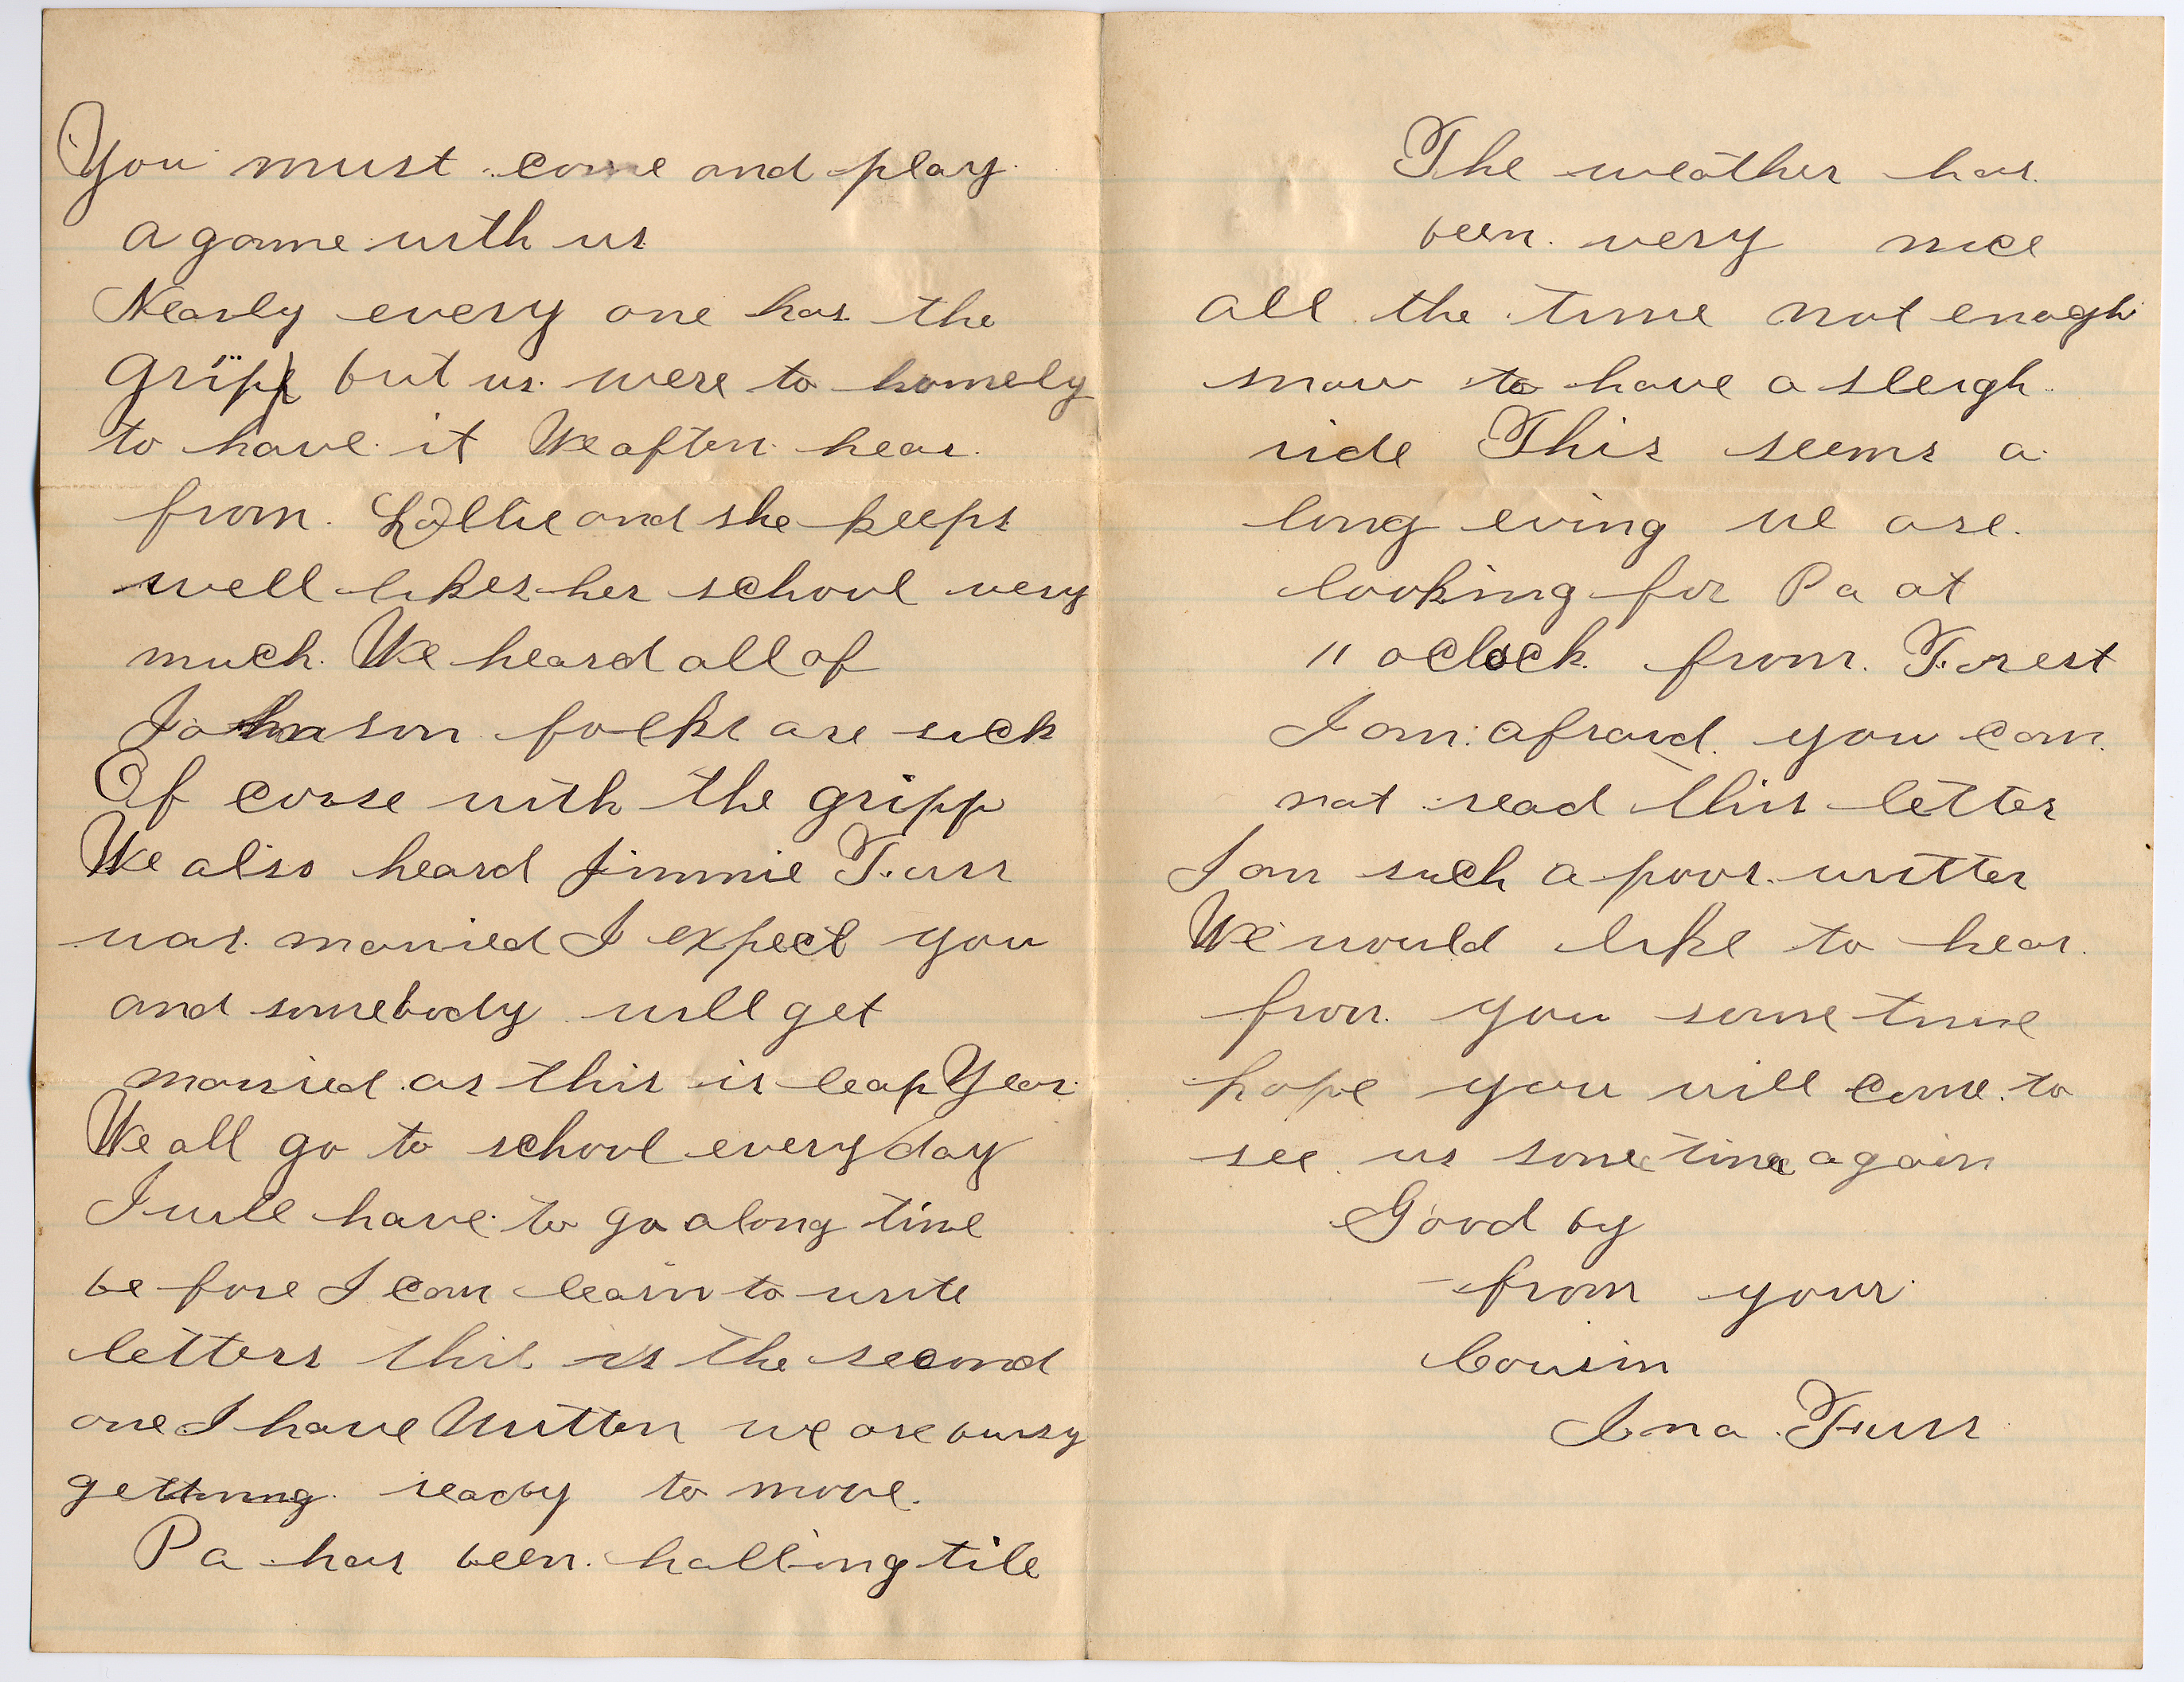 You must come and play
a game with us
Nearly every one has the
gripp but us were to homely
to have it We often hear
from Lollie and she keeps
well likes her school very
much. We heard all of
Johnson folks are sick
Of corse with the gripp
We also heard Jimmie Furr
was married I expect you
and somebody will get
married as this is leap Year
We all go to school every day
I will have to go along time
be fore I can learn to write
letters this is the second
one I have Written we are bussy
getting ready to move.
Pa has been halling tile
The weather has
been very nice
all the time not enogh
snow to have a sleigh
ride This seems a
long eving we are
looking for Pa at
11 oclock from Forest
I am afraid you can
not read this letter
I am such a poor writter
We would like to hear
from you some time
hope you will come to
see us some time again
Good by
from your
Cousin
Ina Furr